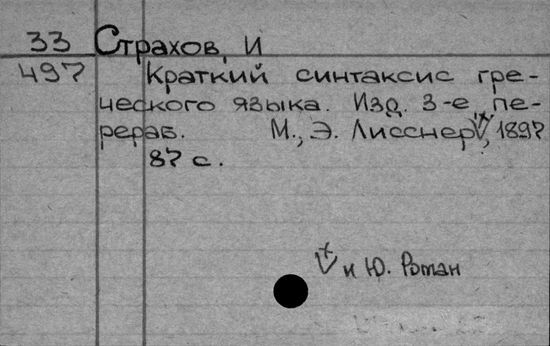 33 Страхов, И
497 Краткий синтаксис гре-
ческого языка. Изд. 3-е, пе-
рераб. М., Э. Лисснер, 1897
87 с.
и Ю. Роман